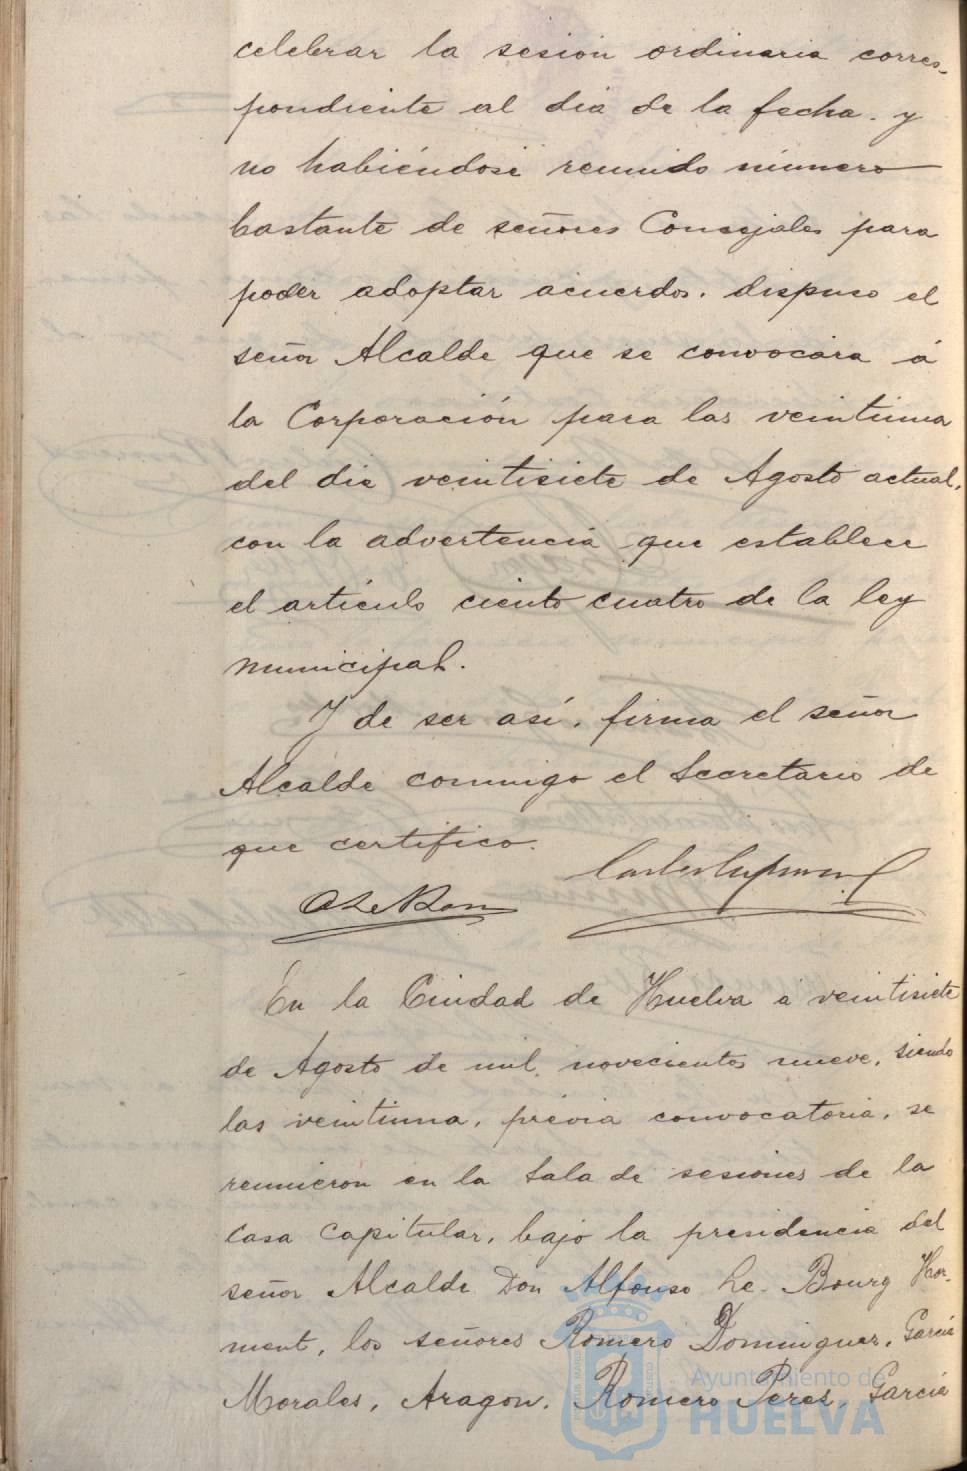 celebrar la sesión ordinaria corres-
pondiente al dia de la fecha. y
no habiéndose reunido número
bastante de señores Concejales para
poder adoptar acuerdos. dispuso el
señor Alcalde que se convocara á
la Corporación para las veintiuna
del dia veintisiete de Agosto actual,
con la advertencia que establece
el artículo ciento cuatro de la ley
municipal.
Y de ser así, firma el señor
Alcalde conmigo el Secretario de
que certifico.
En la Ciudad de Huelva á veintisiete
de Agosto de mil novecientos nueve, siendo
las veintiuna, prévia convocatoria, se
reunieron en la Sala de sesiones de la
Casa Capitular, bajo la presidencia del
señor Alcalde Don Alfonso Le Bourg Hor-
ment, los señores Romero Dominguez, García
Morales, Aragon, Romero Perez, García
Ayuntamiento de
HUELVA